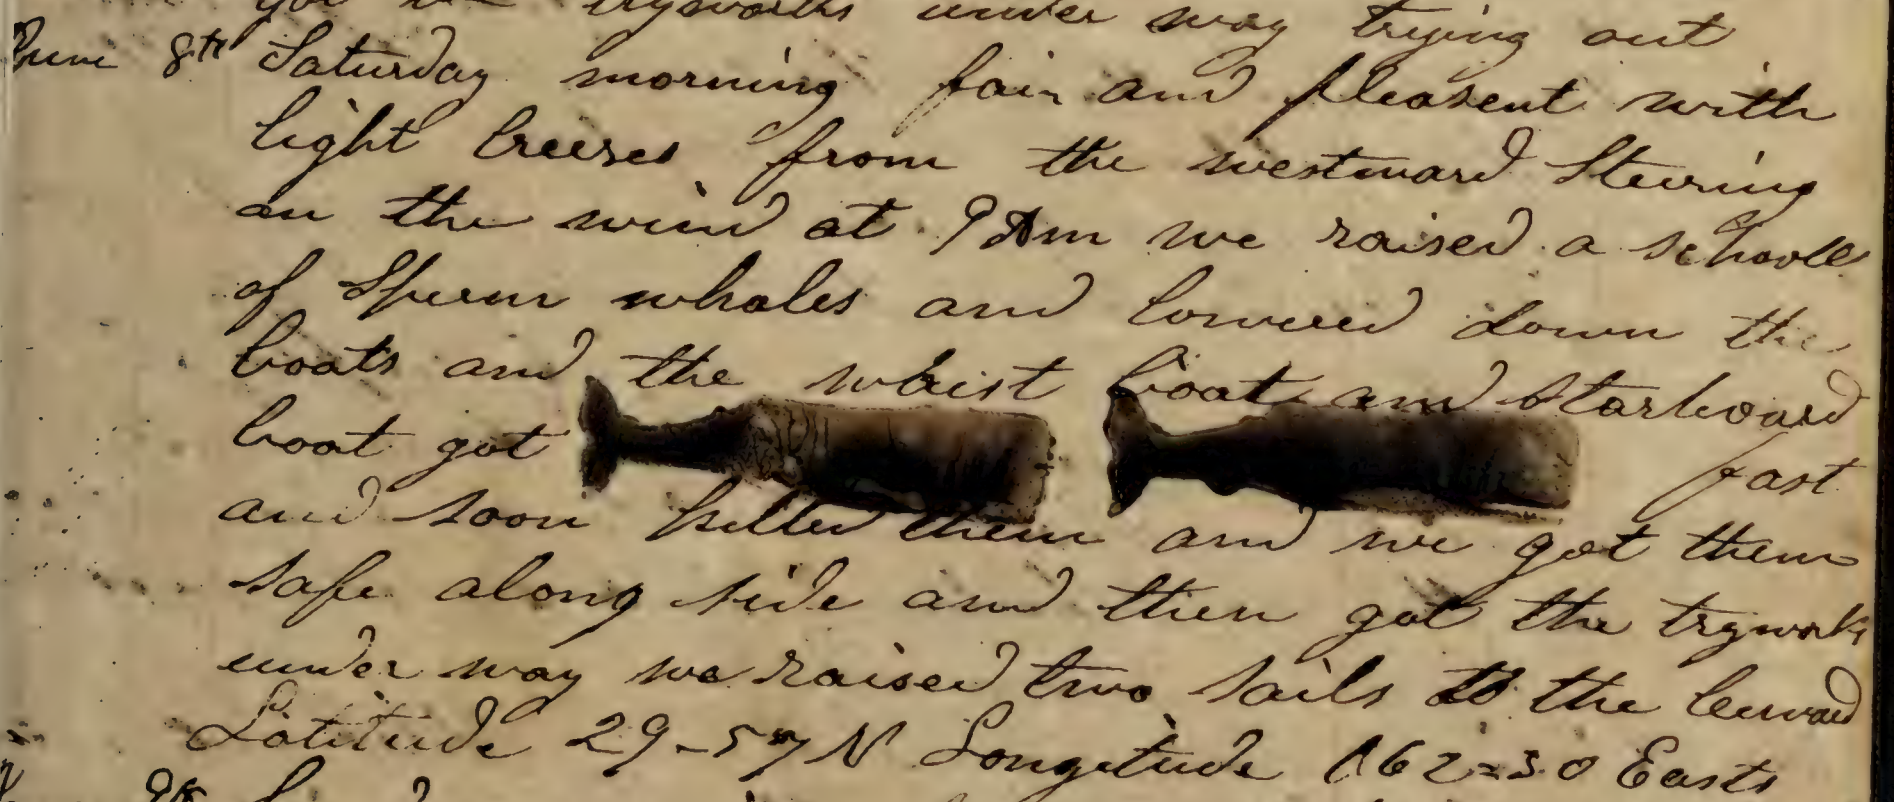 tryworks under way trying out
June 8th Saturday morning fair and pleasent with
light breeses from the westward Steering
on the wind at 9 Am we raised a schoole
of Sperm whales and lowered down the
boats and the waist boat and Starboard
boat got fast
and soon killed them and we got them
safe along side and then got the tryworks
under way we raised two sails to the leward
Latitude 29-57 N Longitude 162=30 Easts